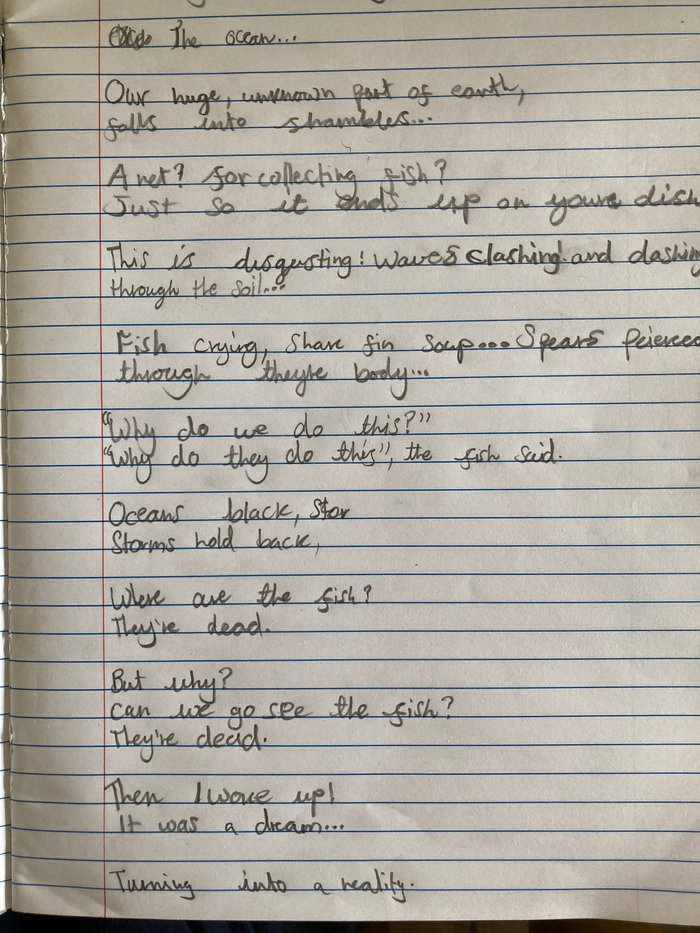 The ocean...
Our huge, unknown part of earth,
falls into shambles...
A net? for collecting fish?
Just so it ends up on youre dish
This is disgusting! Waves clashing and dashing
through the soil...
Fish crying, Share fin soup... Spears peierced
through theyre body...
"Why do we do this?"
"Why do they do this", the fish said.
Oceans black, stor
Storms hold back,
Where are the fish?
They're dead.
But why?
Can we go see the fish?
They're dead.
Then I woue up!
It was a dream...
Turning into a reality.